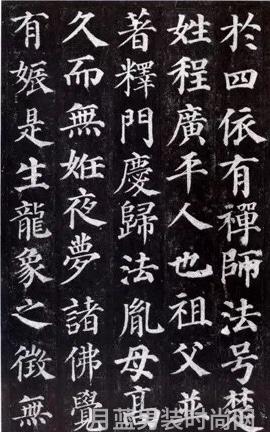 於四依有禪師法号楚
姓程廣平人也祖父並
著釋門慶歸法胤母高
久而無妊夜夢諸佛覺
有娠是生龍象之徵無
月蓝男装时尚网